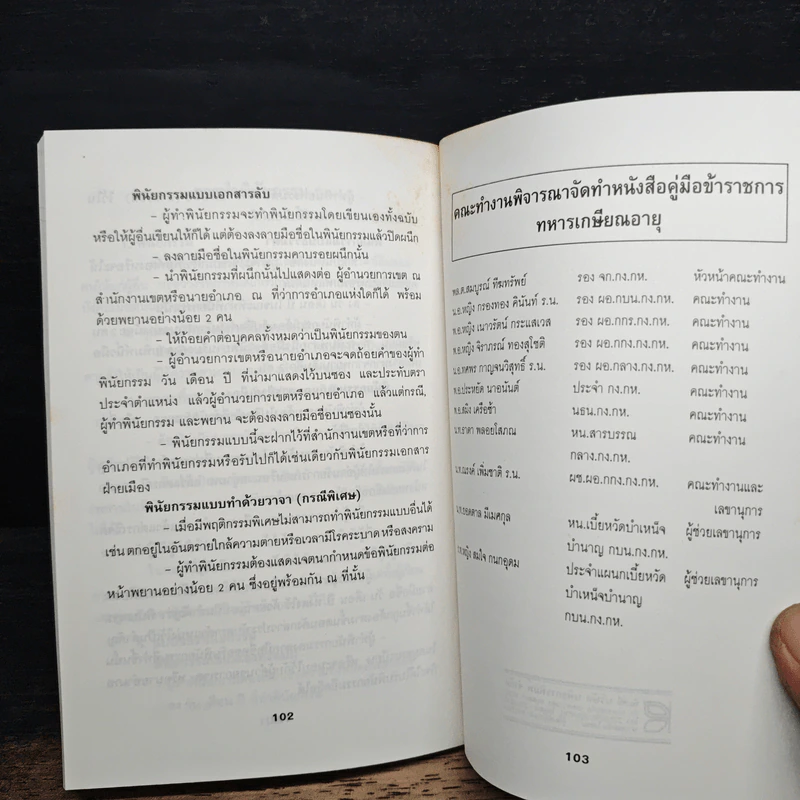 พินัยกรรมแบบเอกสารลับ
– ผู้ทำพินัยกรรมจะทำพินัยกรรมโดยเขียนเองทั้งฉบับ
หรือให้ผู้อื่นเขียนให้ก็ได้ แต่ต้องลงลายมือชื่อในพินัยกรรมแล้วปิดผนึก
– ลงลายมือชื่อในพินัยกรรมคาบรอยผนึกนั้น
– นำพินัยกรรมที่ผนึกนั้นไปแสดงต่อ ผู้อำนวยการเขต ณ
สำนักงานเขตหรือนายอำเภอ ณ ที่ว่าการอำเภอแห่งใดก็ได้ พร้อม
ด้วยพยานอย่างน้อย 2 คน
– ให้ถ้อยคำต่อบุคคลทั้งหมดว่าเป็นพินัยกรรมของตน
– ผู้อำนวยการเขตหรือนายอำเภอจะจดถ้อยคำของผู้ทำ
พินัยกรรม วัน เดือน ปี ที่นำมาแสดงไว้บนซอง และประทับตรา
ประจำตำแหน่ง แล้วผู้อำนวยการเขตหรือนายอำเภอ แล้วแต่กรณี,
ผู้ทำพินัยกรรม และพยาน จะต้องลงลายมือชื่อบนซองนั้น
– พินัยกรรมแบบนี้จะฝากไว้ที่สำนักงานเขตหรือที่ว่าการ
อำเภอที่ทำพินัยกรรมหรือรับไปก็ได้เช่นเดียวกับพินัยกรรมเอกสาร
ฝ่ายเมือง
พินัยกรรมแบบทำด้วยวาจา (กรณีพิเศษ)
– เมื่อมีพฤติกรรมพิเศษไม่สามารถทำพินัยกรรมแบบอื่นได้
เช่น ตกอยู่ในอันตรายใกล้ความตาย หรือเวลามีโรคระบาด หรือสงคราม
– ผู้ทำพินัยกรรมต้องแสดงเจตนากำหนดข้อพินัยกรรมต่อ
หน้าพยานอย่างน้อย 2 คน ซึ่งอยู่พร้อมกัน ณ ที่นั้น
102
คณะทำงานพิจารณาจัดทำหนังสือคู่มือข้าราชการ
ทหารเกษียณอายุ
พล.ต.สมบูรณ์ ทีฆทรัพย์ รอง จก.กง.กห. หัวหน้าคณะทำงาน
น.อ.หญิง กรองทอง คินันท์ ร.น. รอง ผอ.กบน.กง.กห. คณะทำงาน
พ.อ.หญิง เนาวรัตน์ กระแสเวส รอง ผอ.กกร.กง.กห. คณะทำงาน
พ.อ.หญิง จิราภรณ์ ทองสุโชติ รอง ผอ.กกง.กง.กห. คณะทำงาน
น.อ.ทศพร กาญจนวิสุทธิ์ ร.น. รอง ผอ.กลาง.กง.กห. คณะทำงาน
พ.อ.ประหยัด นาอนันต์ ประจำ กง.กห. คณะทำงาน
พ.อ.สมิง เครือช้า นธน.กง.กห. คณะทำงาน
น.ท.ธาดา พลอยโสภณ หน.สารบรรณ คณะทำงาน
กลาง.กง.กห.
น.ท.ณรงค์ เพิ่มชาติ ร.น. ผช.ผอ.กกง.กง.กห. คณะทำงานและ
เลขานุการ
มีเมศกุล หน.เบี้ยหวัดบำเหน็จ ผู้ช่วยเลขานุการ
บำนาญ กบน.กง.กห.
หญิง สมใจ กนกอุดม ประจำแผนกเบี้ยหวัด ผู้ช่วยเลขานุการ
บำเหน็จบำนาญ
กบน.กง.กห.
103